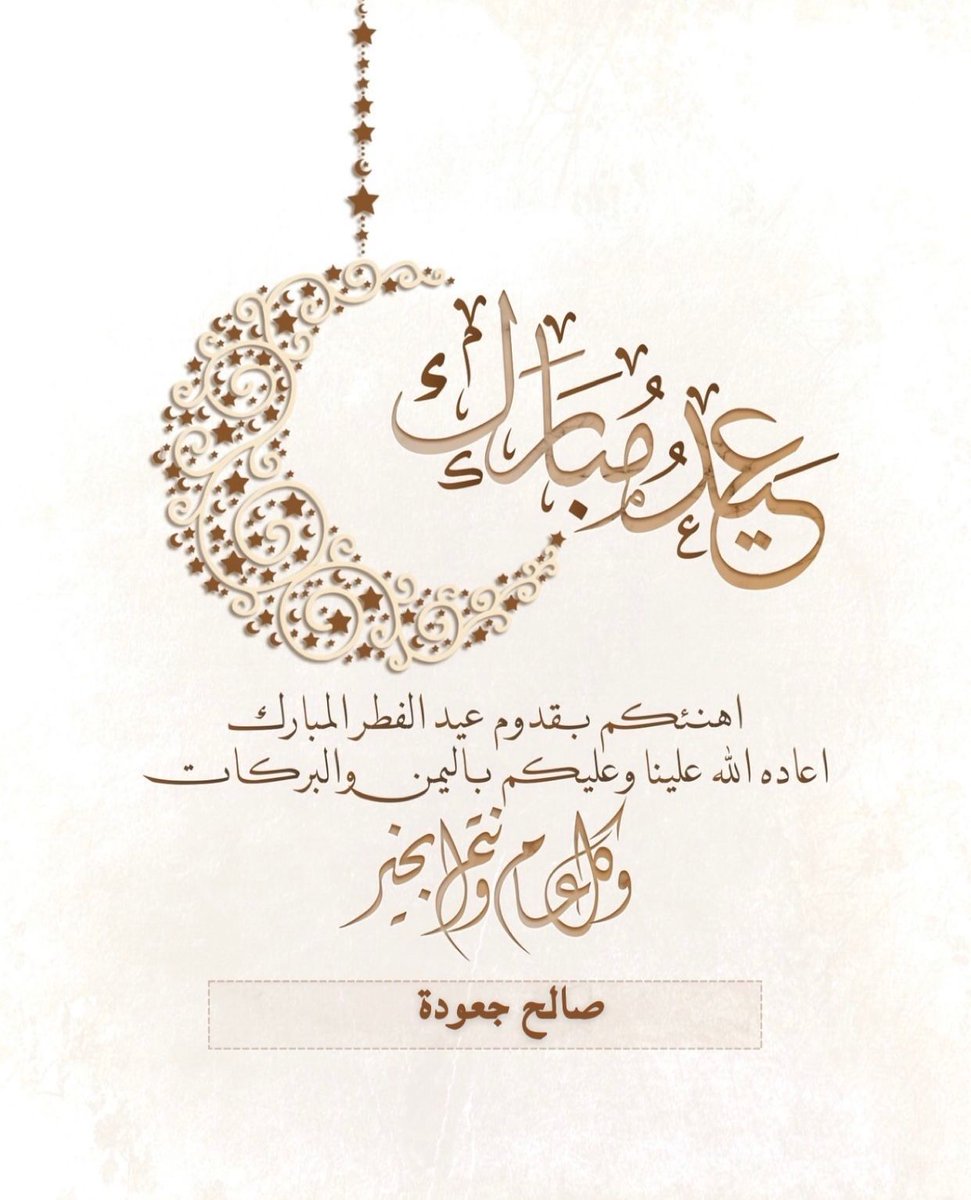 عيد مبارك
اهنئكم بقدوم عيد الفطر المبارك
اعاده الله علينا وعليكم باليمن والبركات
وكل عام وانتم بخير
صالح جعودة